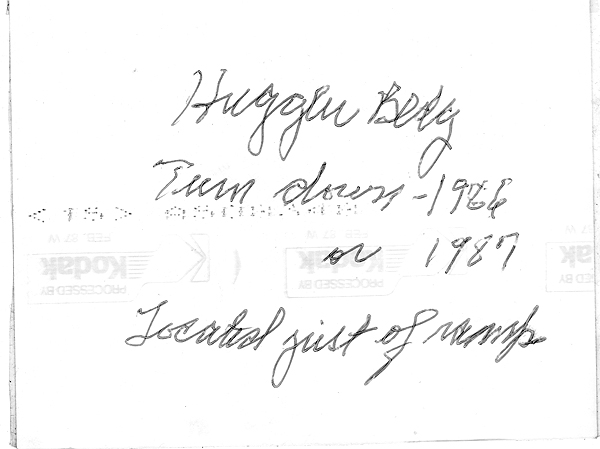 Huggler Bldg
Turn down - 1986
or 1987
Located just of ramp
< 1 5 >
PROCESSED BY Kodak
PROCESSED BY Kodak
PROCESSED BY